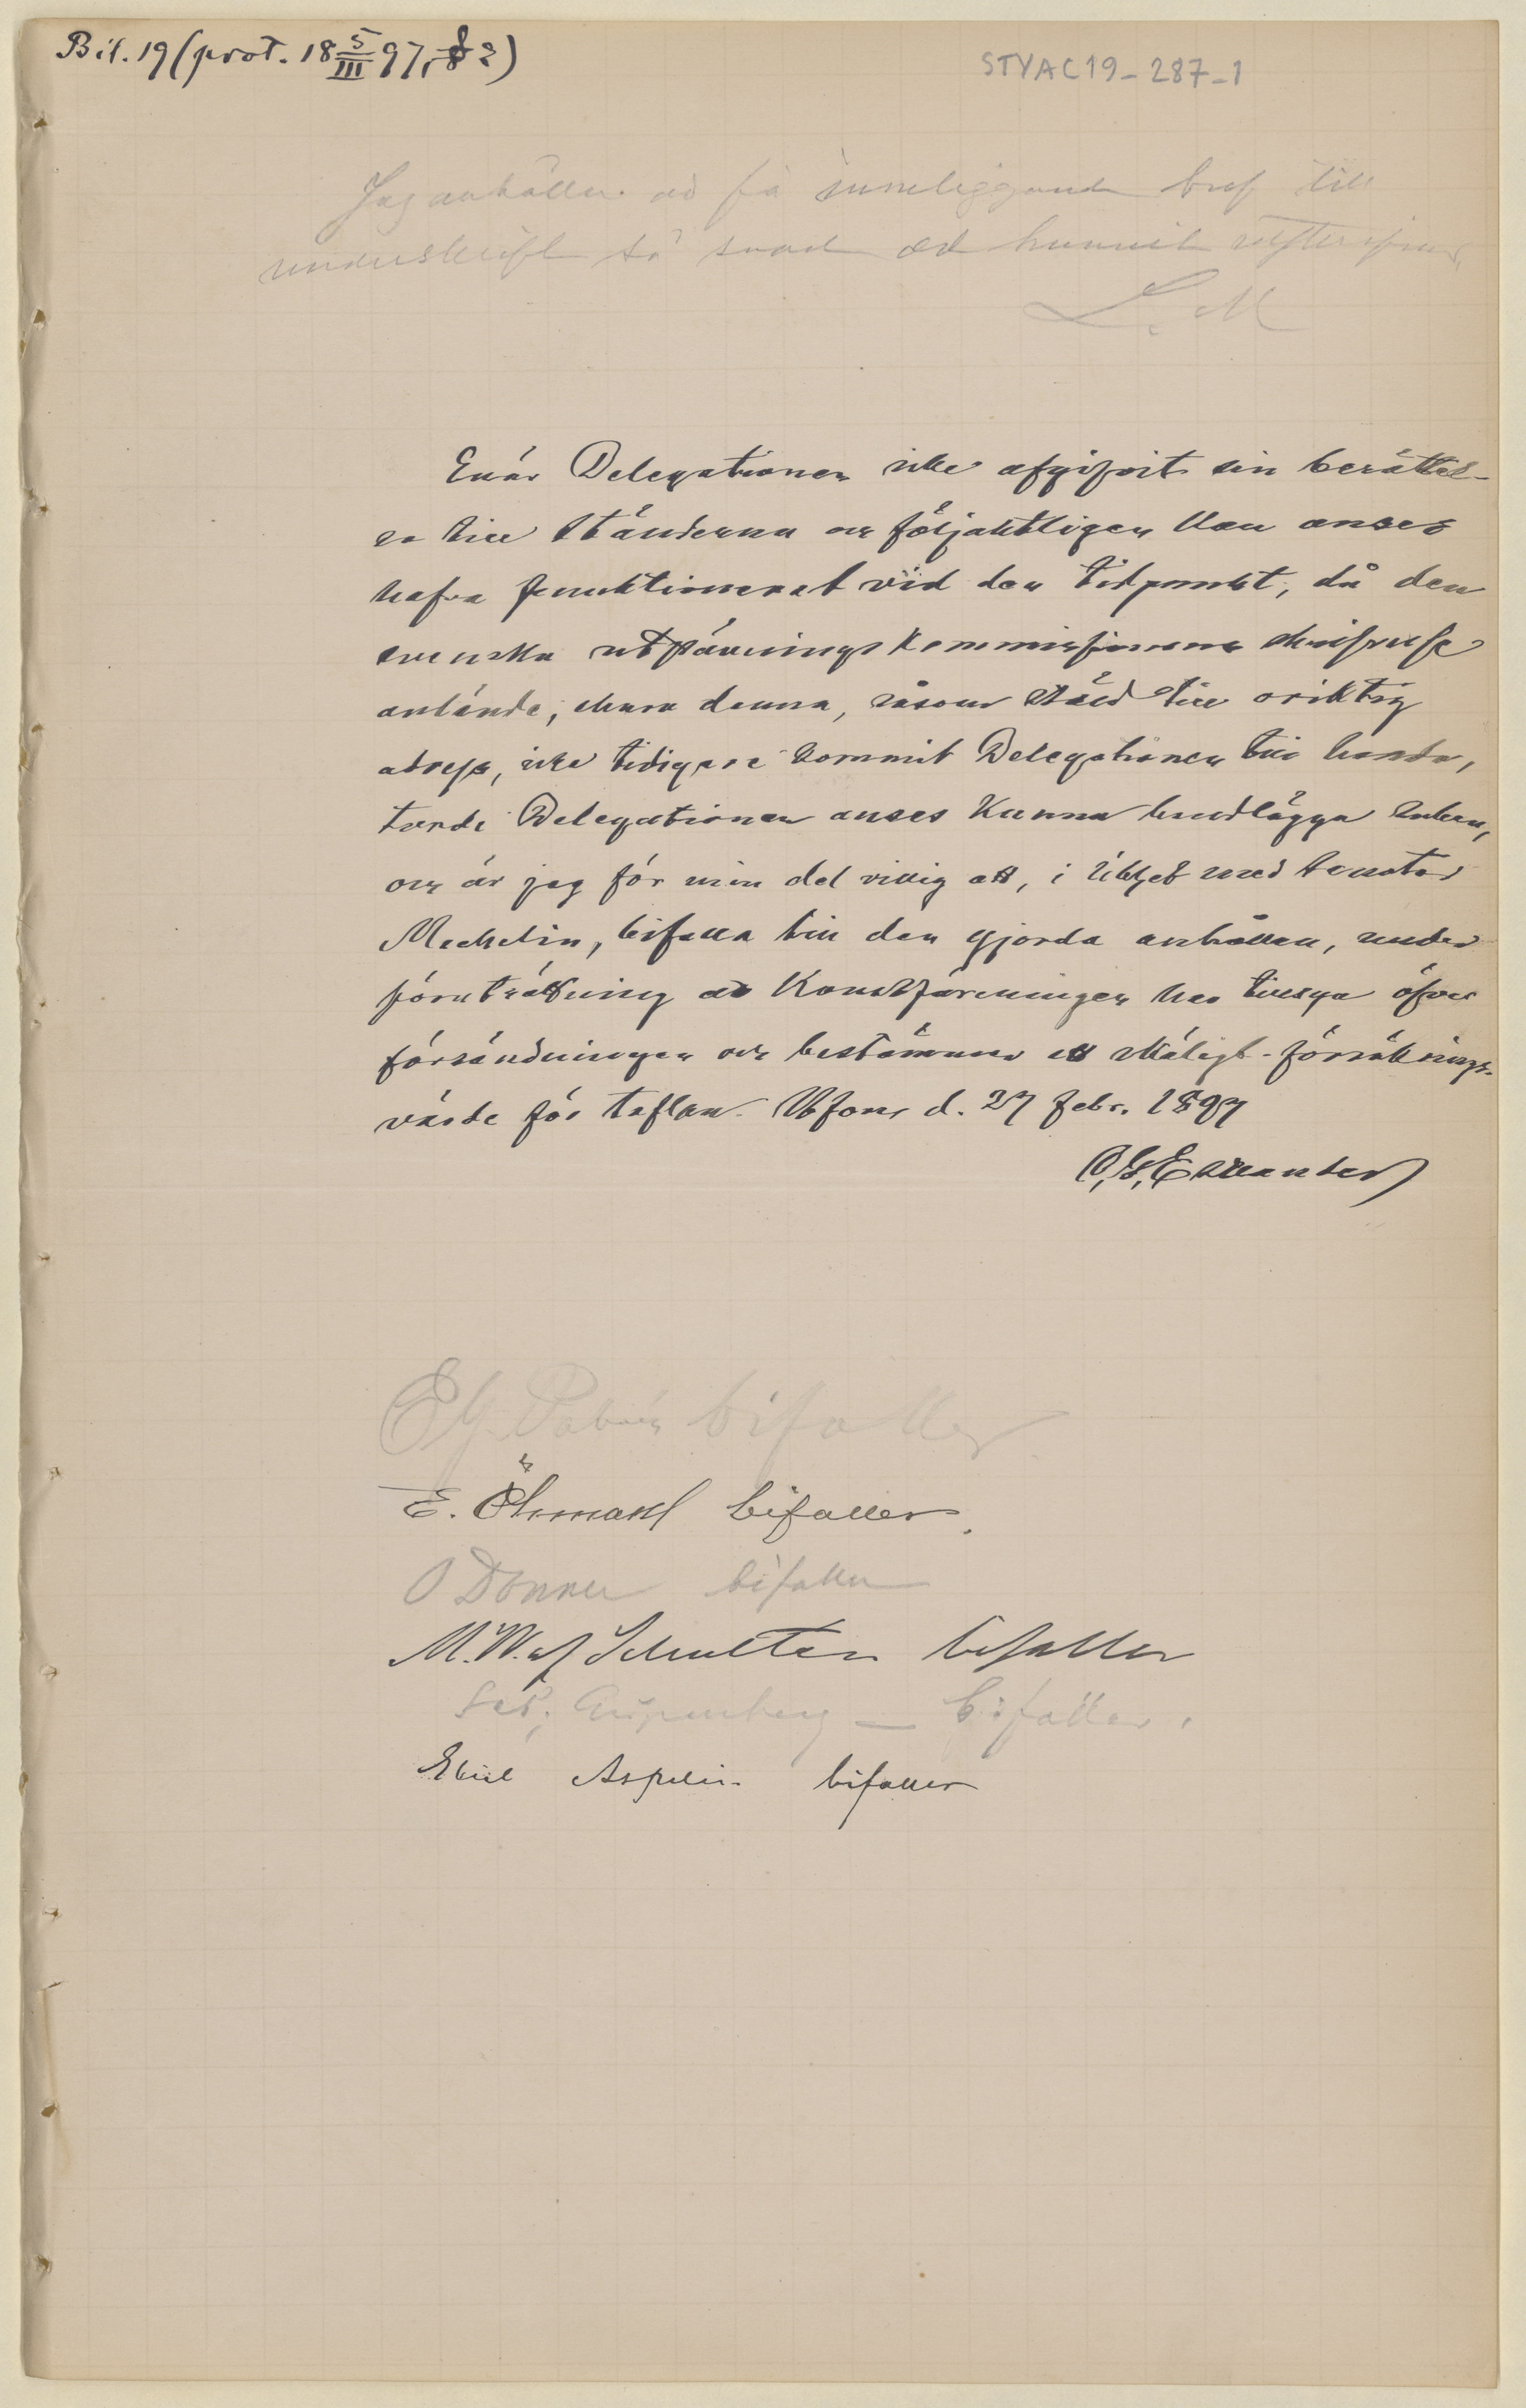 Bil. 19 (prot. 18 5/III 97, § 2)
STYAC19-287-1
Jag anhåller att få inneliggande bref till
underskrift så snart det hunnit
L. M
Enär Delegationen icke afgifvit sin berättel-
se till Ständerna och följaktligen kan anses
hafva funktionerat vid den tidpunkt, då den
svenska utställningskommissionens skrifvelse
anlände, ehuru denna, såsom stäld till oriktig
adress, icke tidigare kommit Delegationen till handa,
torde Delegationen anses kunna handlägga saken,
och är jag för min del villig att, i likhet med Senator
Mechelin, bifalla till den gjorda anhållan, under
förutsättning att Konstföreningen har tillsyn öfver
försändningen och bestämmer ett skäligt försäkrings-
värde för taflan. Hfors d. 27 febr. 1897
C. G. Estlander
E G Palmén bifaller
E. Öhrnman bifaller.
O Donner bifaller
M. W. af Schultén bifaller
Seb. Gripenberg — bifaller.
Eliel Aspelin bifaller